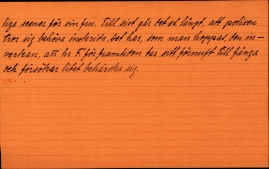 liga scener för sin fru. Till sist går det så långt, att polisen
tror sig behöva inskrida. Det har, som man hoppas, den in-
verkan, att hr F. för framtiden tar sitt förnuft till fånga
och försöker litet behärska sig.